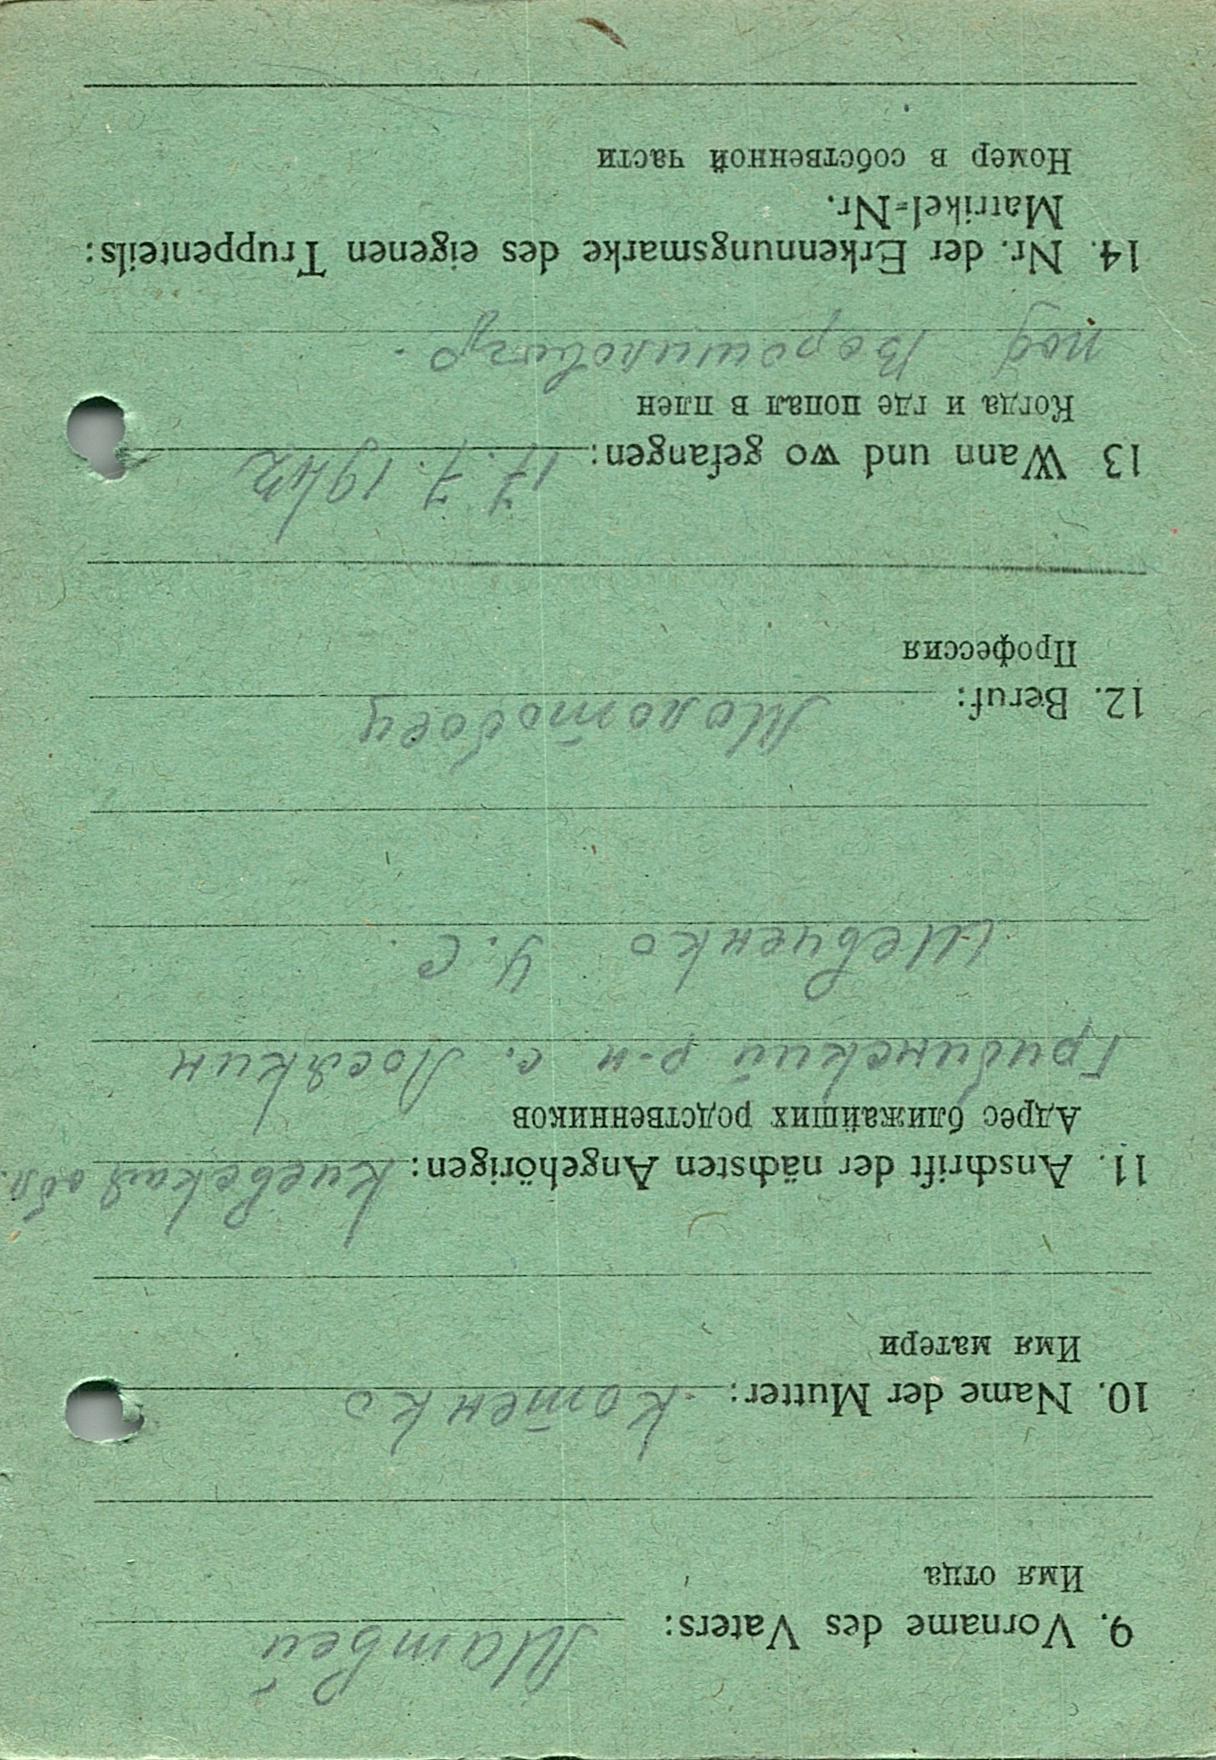 9. Vorname des Vaters: Матвей
Имя отца
10. Name der Mutter: Котенко
Имя матери
11. Anschrift der nächsten Angehörigen: Киевская обл.
Адрес ближайших родственников
р-н с.
Шевченко У. С.
12. Beruf: Молотобоец
Профессия
13 Wann und wo gefangen: 17. 7. 1942
Когда и где попал в плен
под
14. Nr. der Erkennungsmarke des eigenen Truppenteils:
Matrikel-Nr.
Номер в собственной части